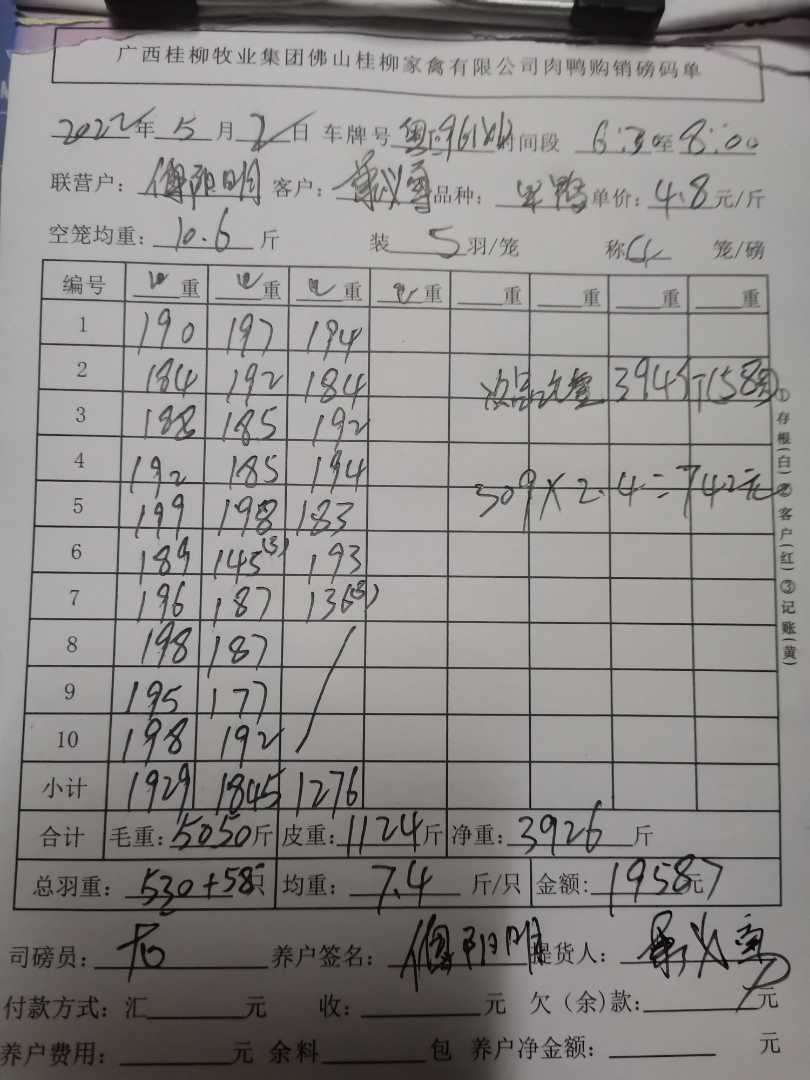 广西桂柳牧业集团佛山桂柳家禽有限公司肉鸭购销磅码单
2022年 5 月 2 日 车牌号 粤 时间段 6:30至8:00
联营户: 阳明 客户: 品种: 鸭 单价: 4.8 元/斤
空笼均重: 10.6 斤 装 5 羽/笼 称 4 笼/磅
编号 重 重 重 重 重 重 重 重
1 190 197 194
2 184 192 184 394斤(58只)
3 188 185 192
4 192 185 194
309×2.4=742元
5 199 198 183
6 189 145(3) 193
7 196 187 136(3)
8 198 187
9 195 177
10 198 192
小计 1929 1845 1276
合计 毛重: 5050斤 皮重: 1124斤 净重: 3926 斤
总羽重: 530+58只 均重: 7.4 斤/只 金额: 19587元
司磅员: 养户签名: 阳明 提货人:
付款方式: 汇 元 收: 元 欠(余)款: 元
养户费用: 元 余料 包 养户净金额: 元
①存根(白)②客户(红)③记账(黄)